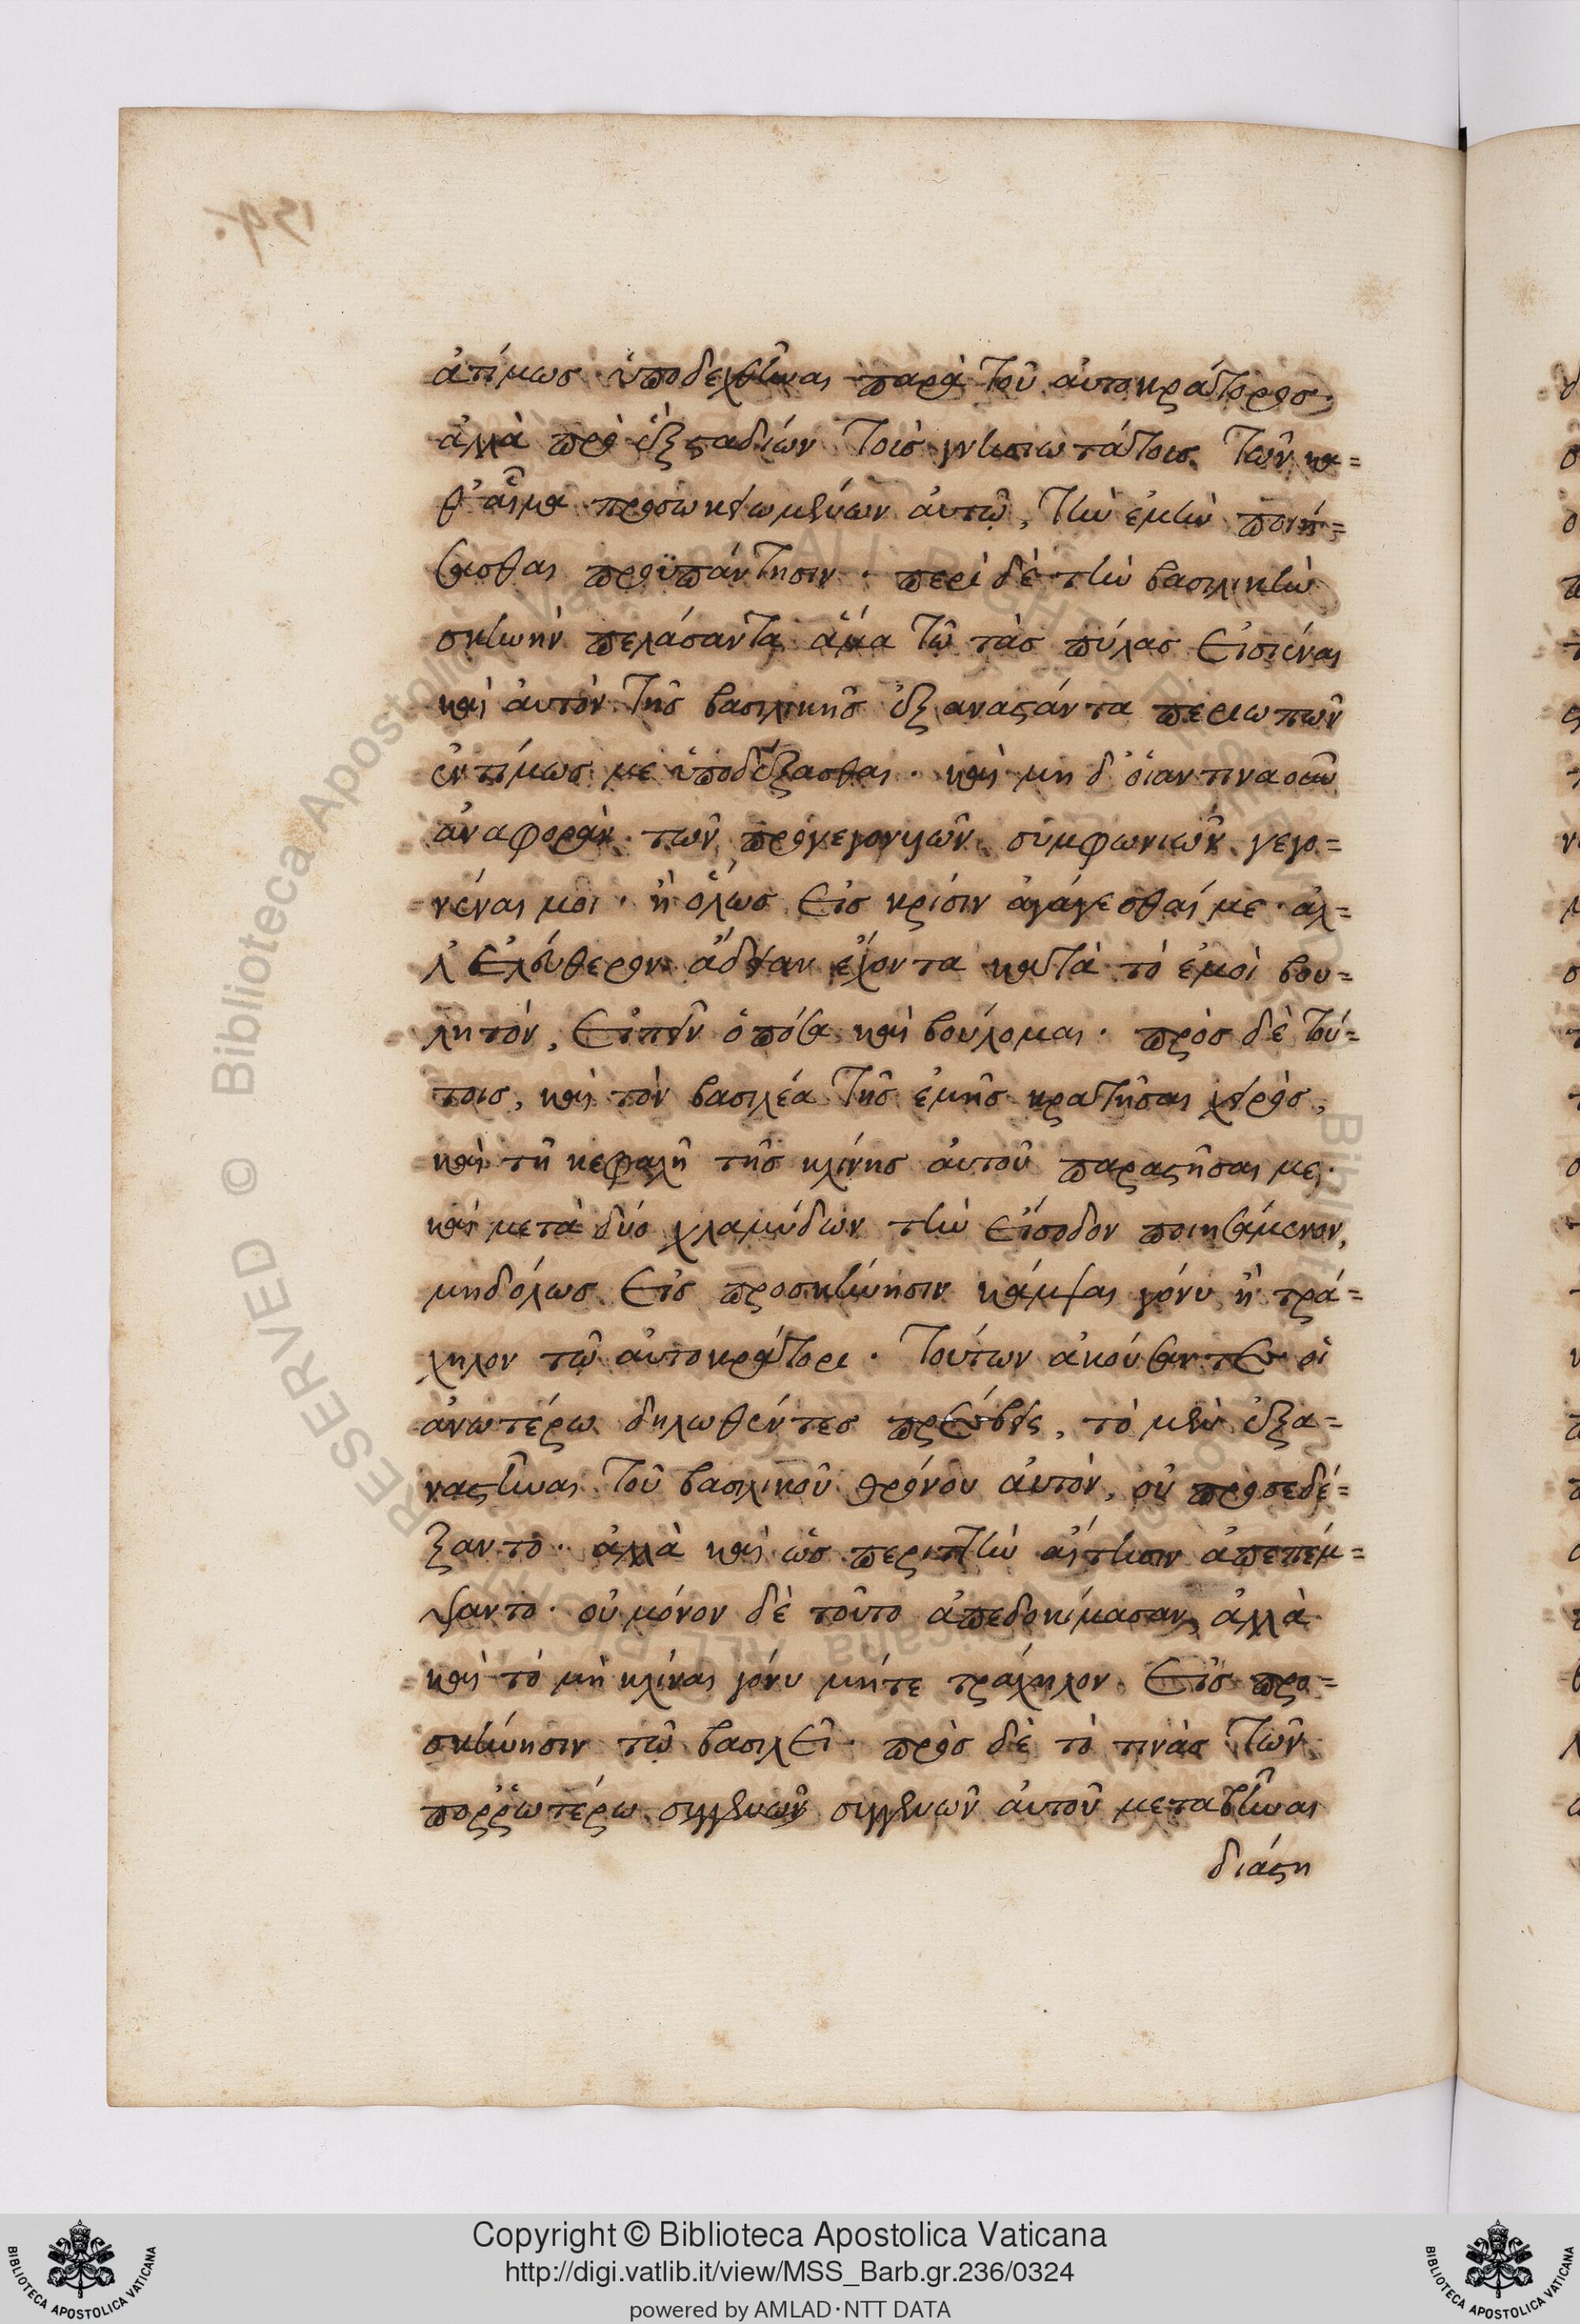 ἀτίμως ὑποδεχθῆναι παρὰ τοῦ αὐτοκράτορος
ἀλλὰ πρὸ ἓξ σταδίων τοῖς γνησιωτάτοις τῶν κα=
θ' αἷμα προσῳκειωμένων αὐτῷ, τὴν ἐμὴν ποιή=
σασθαι προϋπάντησιν· περὶ δὲ τὴν βασιλικὴν
σκηνὴν πελάσαντα ἅμα τῷ τὰς πύλας εἰσιέναι
καὶ αὐτὸν τῆς βασιλικῆς ἐξαναστάντα περιωπῆς
ἐντίμως με ὑποδέξασθαι· καὶ μηδ' οἵαντιναοῦν
ἀναφορὰν τῶν προγεγονυιῶν συμφωνιῶν γεγο=
νέναι μοι· ἢ ὅλως εἰς κρίσιν ἀγάγεσθαί με· ἀλ=
λ' ἐλεύθερον ἄδειαν ἔχοντα κατὰ τὸ ἐμοὶ βου=
λητόν, εἰπεῖν ὁπόσα καὶ βούλομαι· πρὸς δὲ τού=
τοις, καὶ τὸν βασιλέα τῆς ἐμῆς κρατῆσαι χειρός,
καὶ τῇ κεφαλῇ τῆς κλίνης αὐτοῦ παραστῆσαι με·
καὶ μετὰ δύο χλαμύδων τὴν εἴσοδον ποιησάμενον,
μηδόλως εἰς προσκύνησιν κάμψαι γόνυ ἢ τρά=
χηλον τῷ αὐτοκράτορι· τούτων ἀκούσαντες οἱ
ἀνωτέρω δηλωθέντες πρέσβεις, τὸ μὲν ἐξα=
ναστῆναι τοῦ βασιλικοῦ θρόνου αὐτόν, οὐ προσεδέ=
ξαντο· ἀλλὰ καὶ ὡς περιττὴν αἴτησιν ἀπεπέμ=
ψαντο· οὐ μόνον δὲ τοῦτο ἀπεδοκίμασαν, ἀλλὰ
καὶ τὸ μὴ κλῖναι γόνυ μήτε τράχηλον εἰς προ=
σκύνησιν τῷ βασιλεῖ· πρὸς δὲ τὸ τινὰς τῶν
πορρωτέρω συγγενῶν συγγενῶν αὐτοῦ μεταβῆναι
διάστη
Copyright © Biblioteca Apostolica Vaticana
http://digi.vatlib.it/view/MSS_Barb.gr.236/0324
powered by AMLAD·NTT DATA